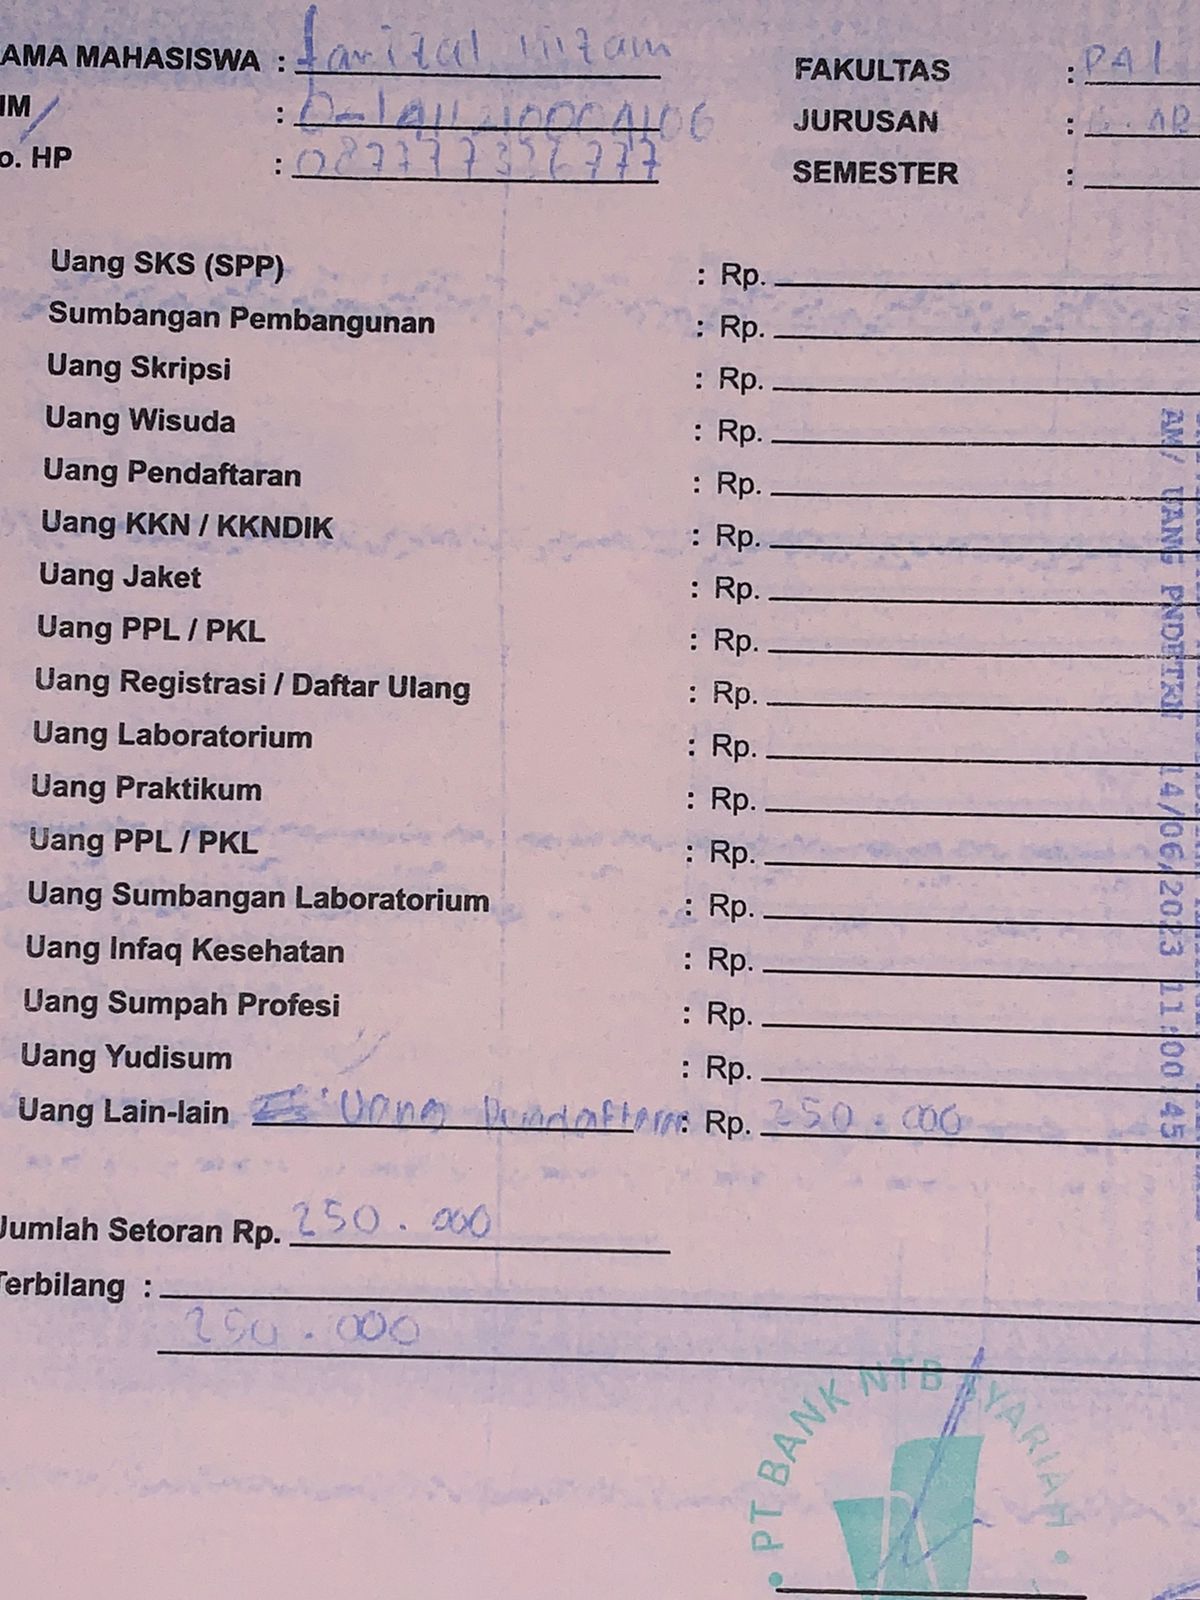 AMA MAHASISWA : farizal nizam
FAKULTAS : PAI
IM :
JURUSAN :
o. HP :
SEMESTER :
Uang SKS (SPP) : Rp.
Sumbangan Pembangunan : Rp.
Uang Skripsi : Rp.
Uang Wisuda : Rp.
Uang Pendaftaran : Rp.
Uang KKN / KKNDIK : Rp.
Uang Jaket : Rp.
Uang PPL / PKL : Rp.
Uang Registrasi / Daftar Ulang : Rp.
Uang Laboratorium : Rp.
Uang Praktikum : Rp.
Uang PPL / PKL : Rp.
Uang Sumbangan Laboratorium : Rp.
Uang Infaq Kesehatan : Rp.
Uang Sumpah Profesi : Rp.
Uang Yudisum : Rp.
Uang Lain-lain Uang Pendaftaran : Rp. 250.000
Jumlah Setoran Rp. 250.000
Terbilang :
250.000
PT BANK NTB SYARIAH
AM/ UANG PNDFTRN 14/06/2023 11:00:45